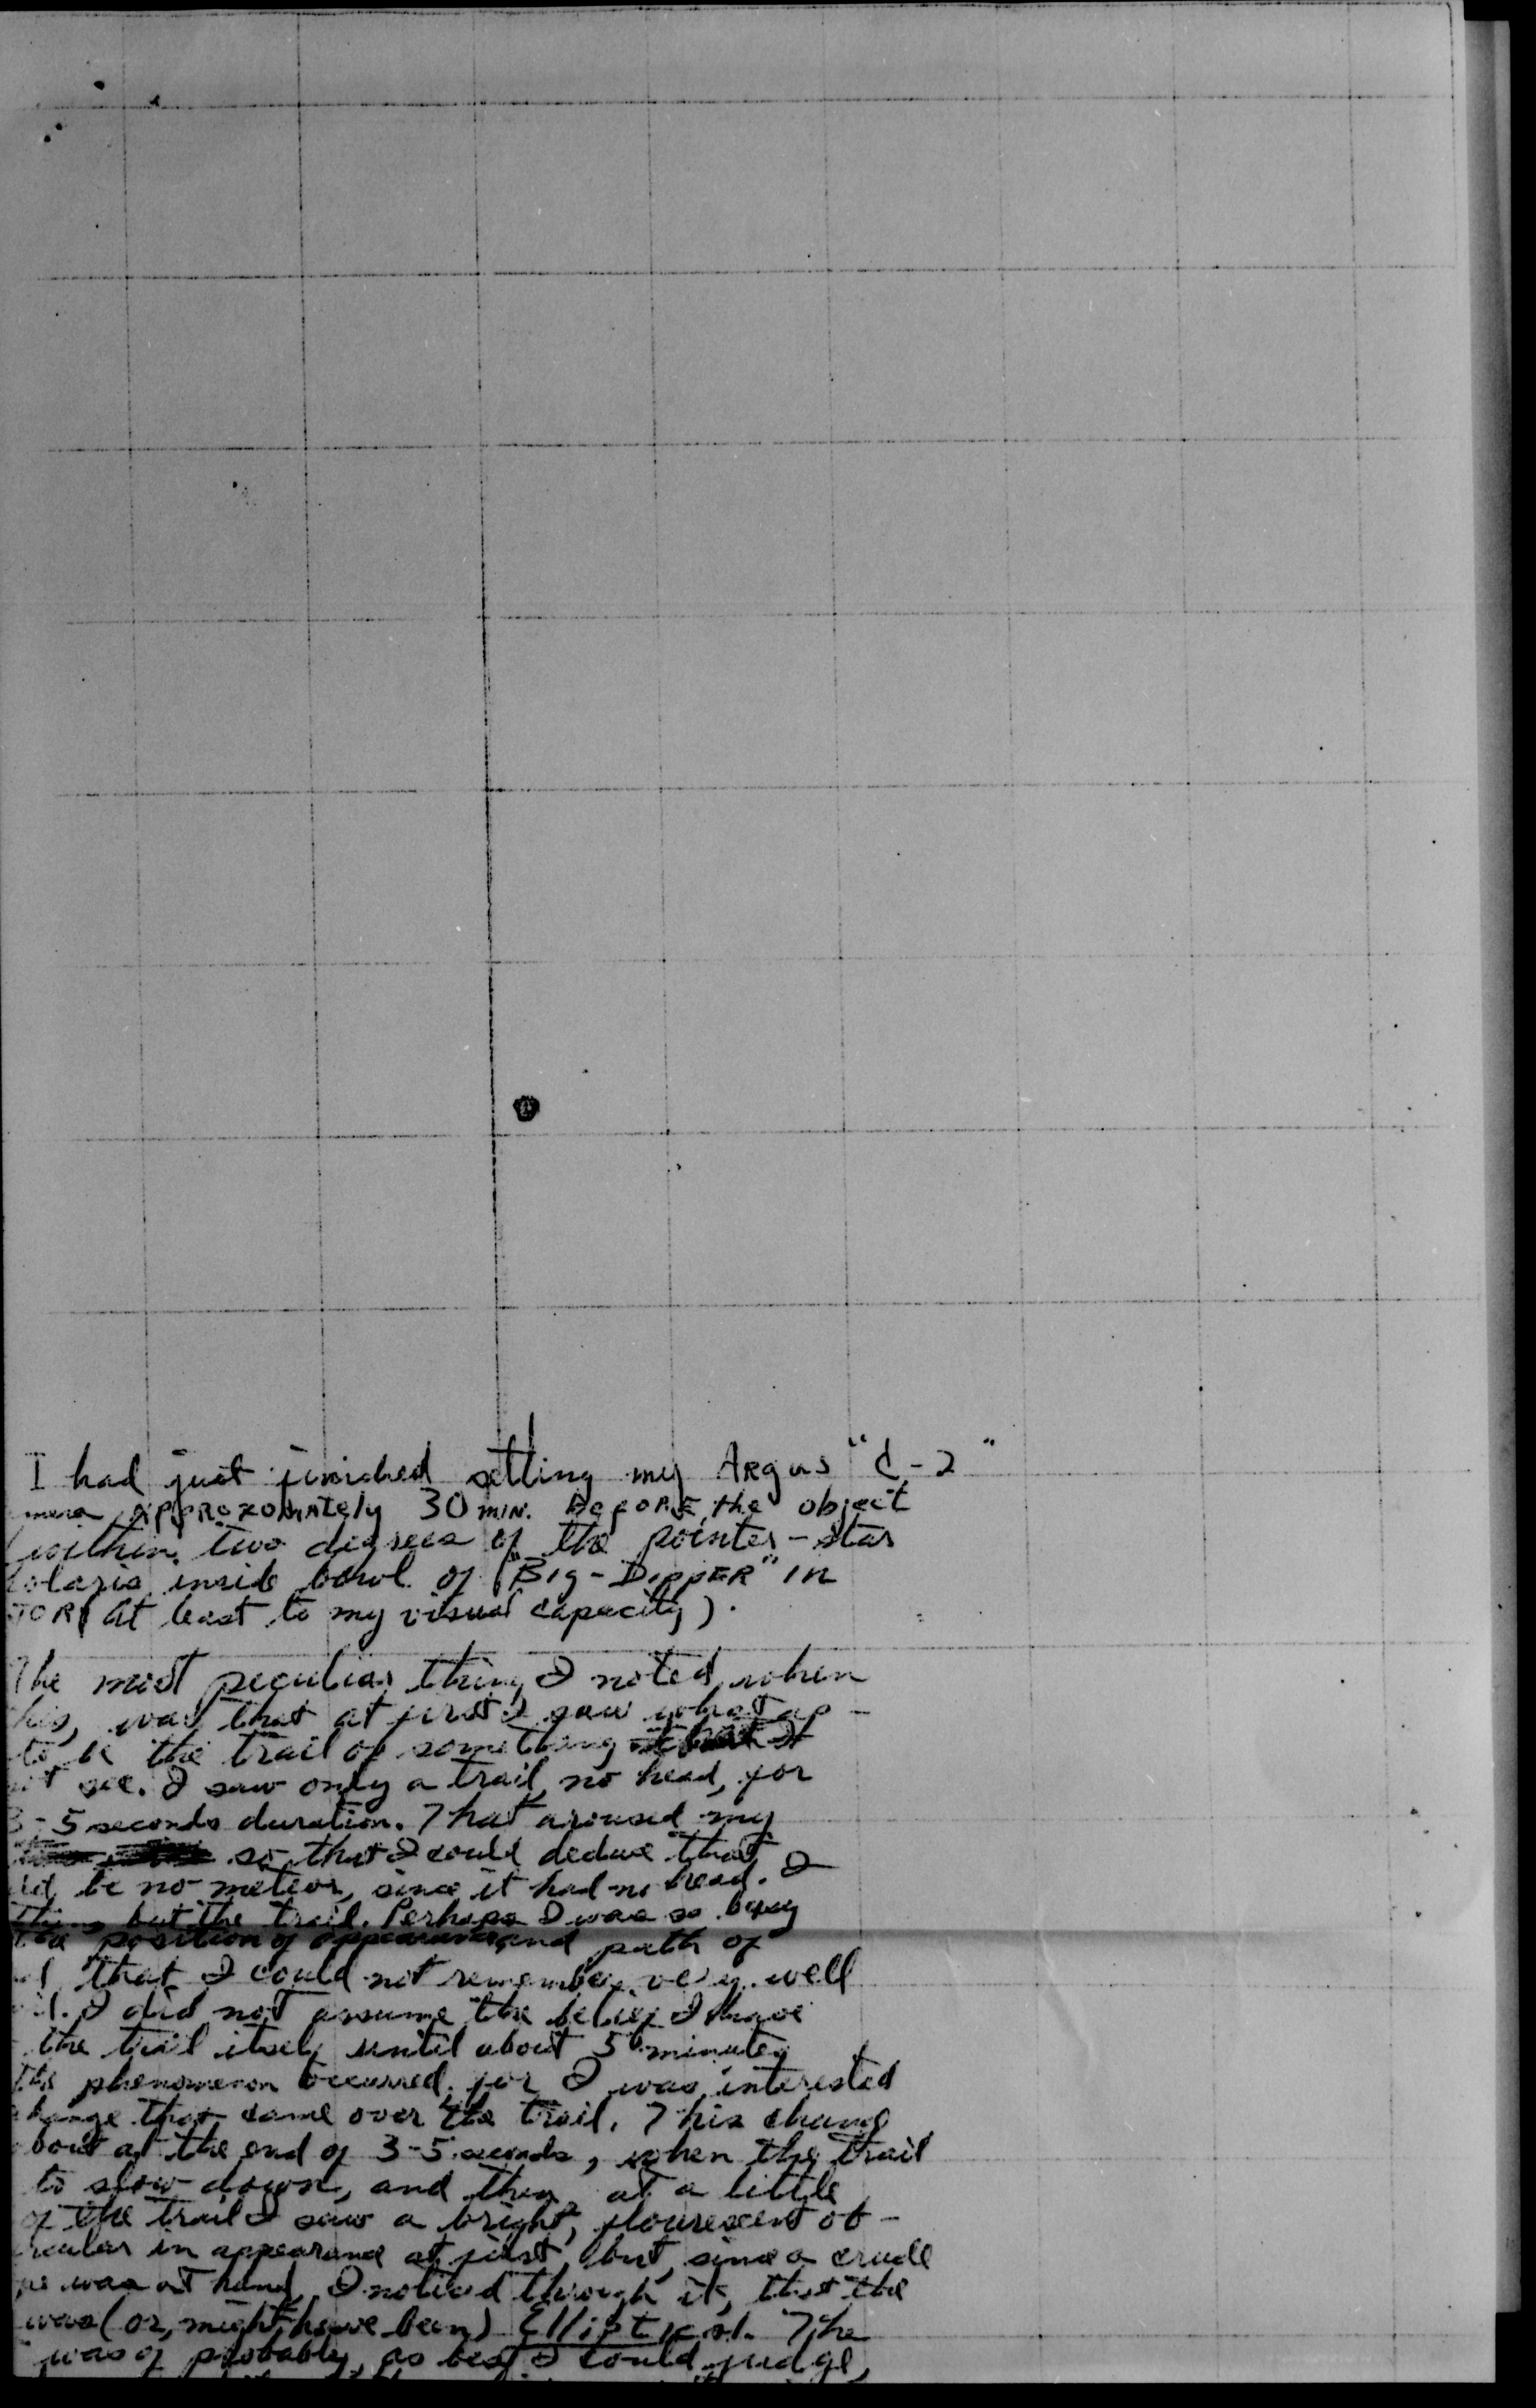 I had just finished setting my Argus "C-2"
mera approxomately 30 min. before the object
(within two degrees of the pointer-star
olaris inside bowl of "Big-Dipper" in
TOR (at least to my visual capacity).
The most peculiar thing I noted, when
his, was that at first I saw what ap-
to be the trail of something
not see. I saw only a trail, no head, for
3-5 seconds duration. That aroused my
so that I could deduce that
uld be no meteor, since it had no head. I
thing but the trail. Perhaps I was so busy
position of appearance and path of
that I could not remember very well
I did not assume the belief I have
the trail itself until about 5 minutes
the phenomenon occurred, for I was interested
change that came over the trail. This change
bout at the end of 3-5 seconds, when the trail
to slow down, and then at a little
of the trail I saw a bright, flourescent ob-
rcular in appearance at first, but, since a crude
pe was at hand, I noticed through it, that the
was (or, might have been) Elliptical. The
was of probably, as best I could judge,